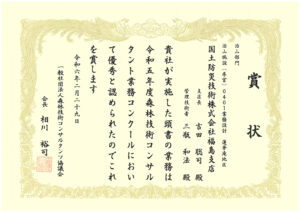 賞状
治山部門
治山施設(専官)0401業務設計 蓬莱鹿地区
国土防災技術株式会社福島支店
支店長 吉田 聡司 殿
管理技術者 三瓶 和法 殿
貴社が実施した頭書の業務は
令和五年度森林技術コンサル
タント業務コンクールにおい
て優秀と認められたのでこれ
を賞します
令和六年二月二十九日
一般社団法人森林技術コンサルタンツ協議会
会長 相川 裕司